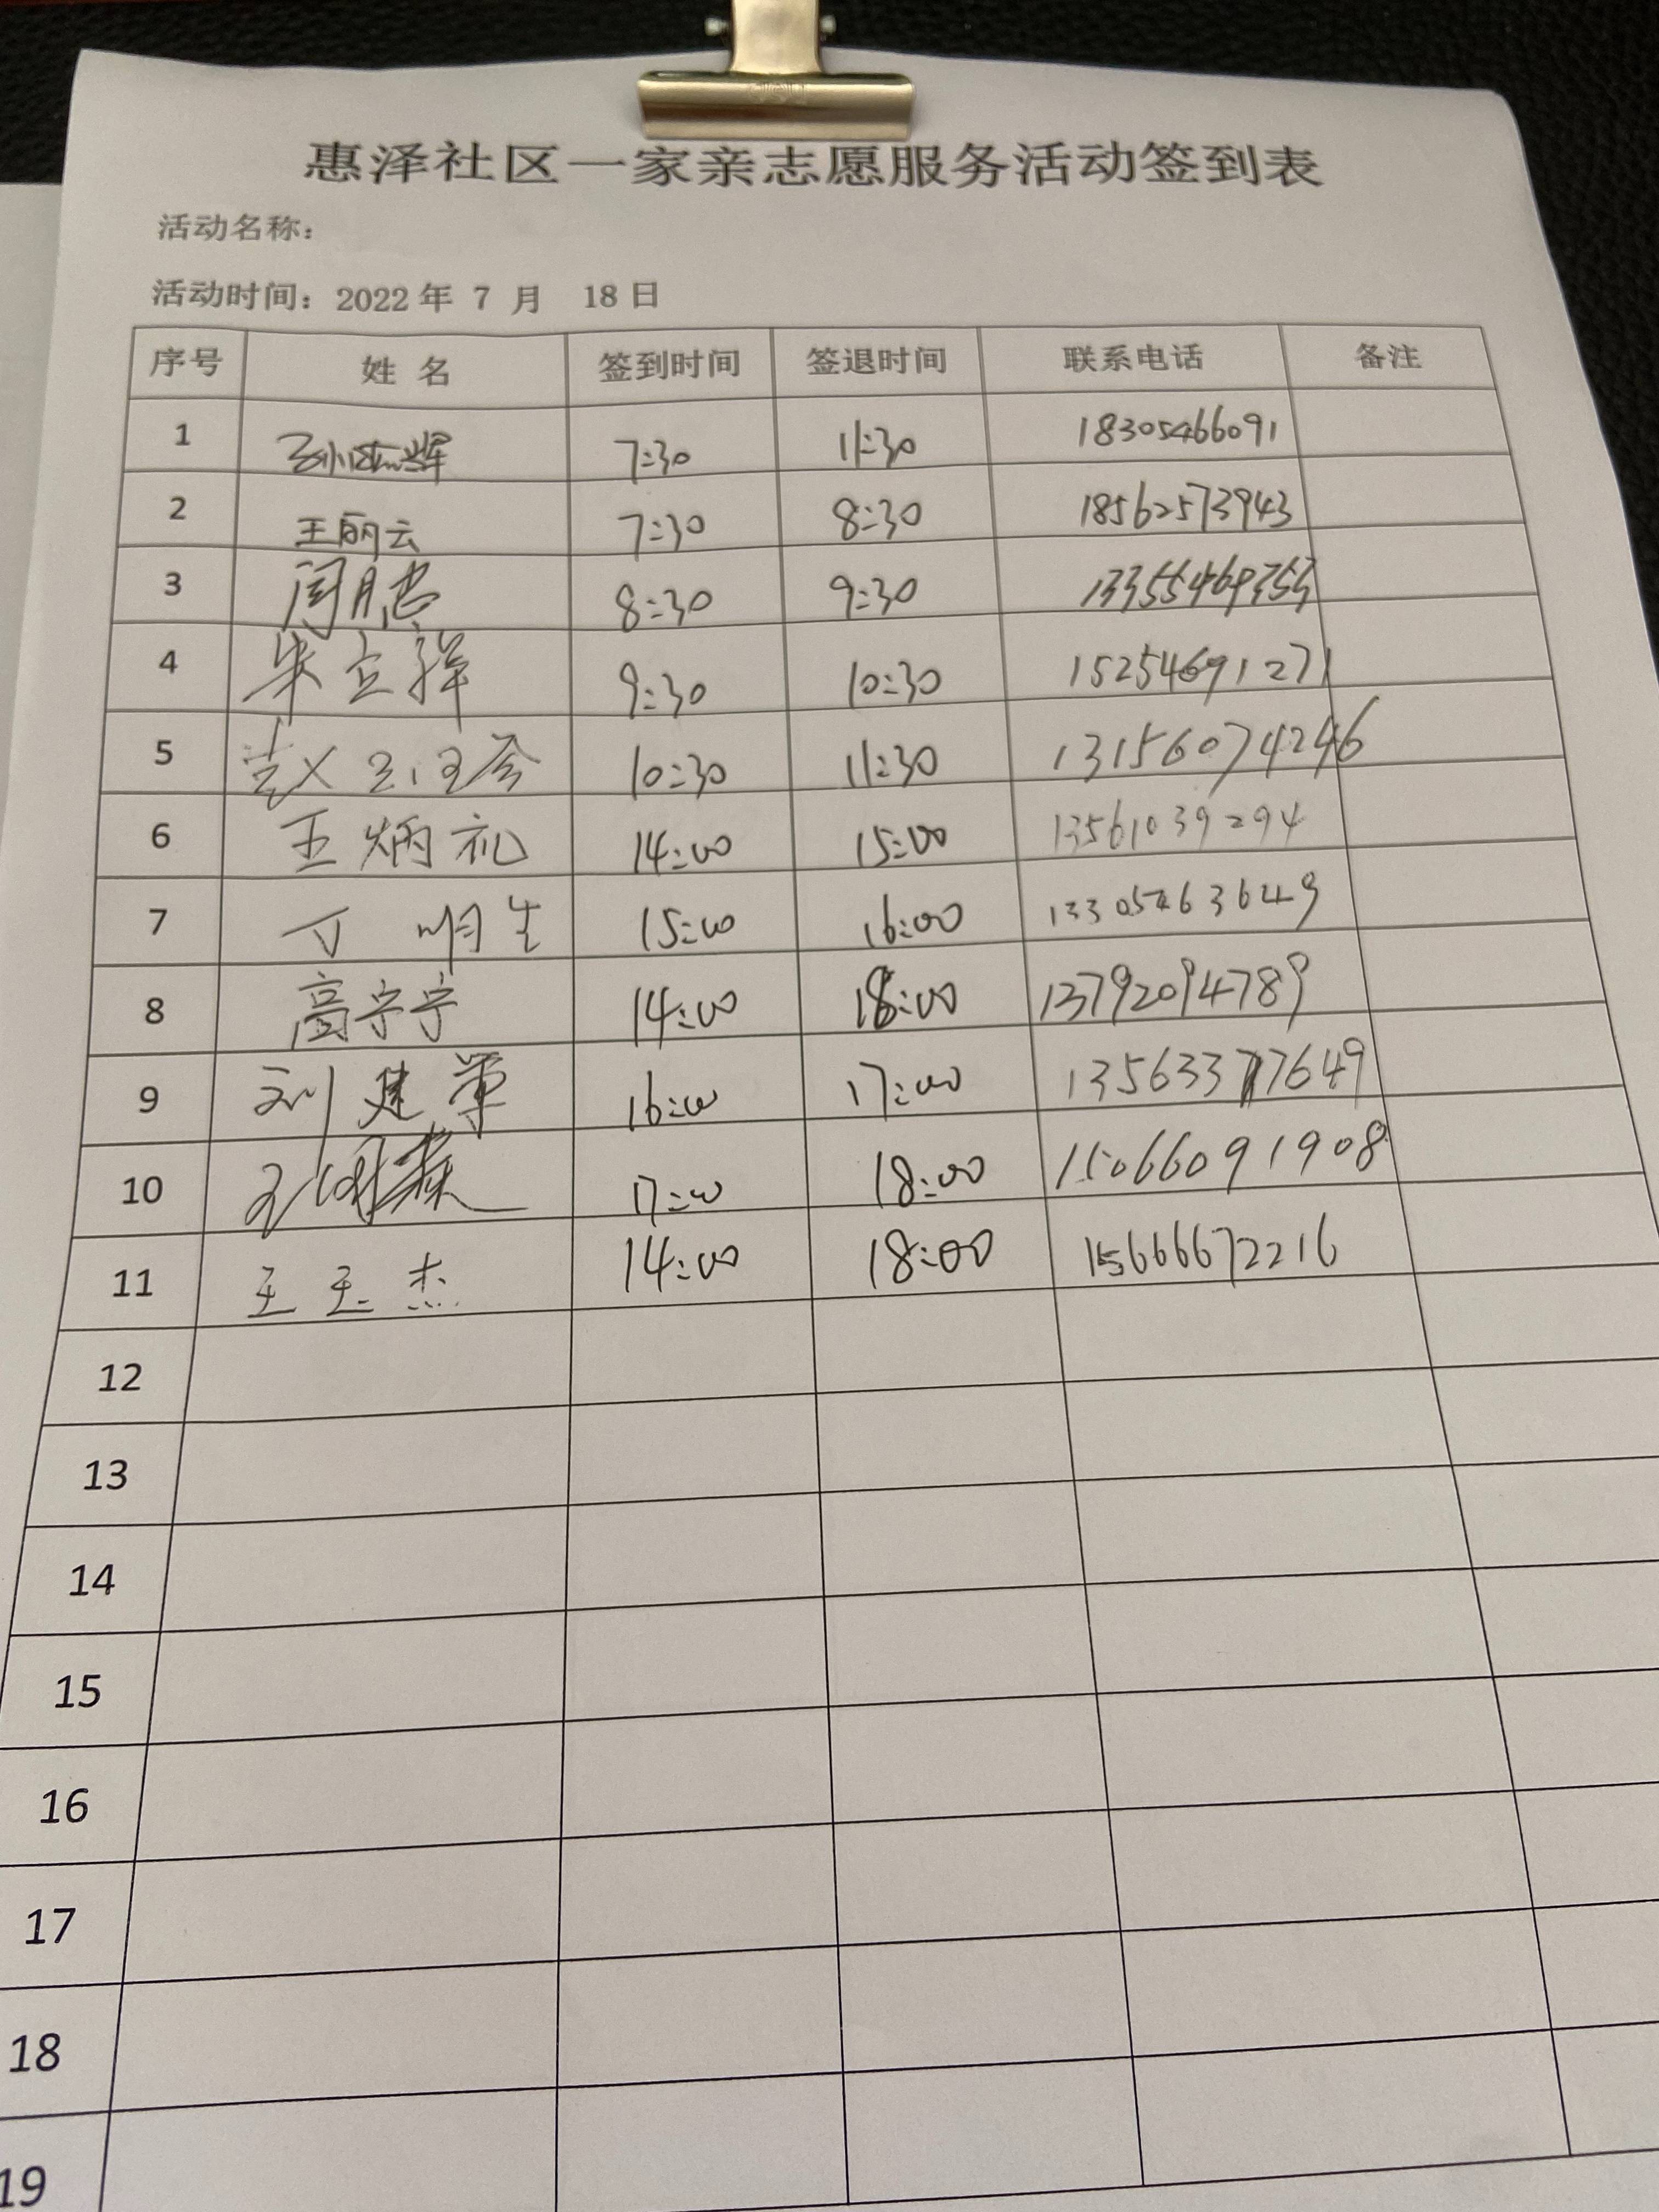 惠泽社区一家亲志愿服务活动签到表
活动名称：
活动时间：2022 年 7 月 18 日
序号 姓 名 签到时间 签退时间 联系电话 备注
1 7:30 11:30 18305466091
2 王丽云 7:30 8:30 18562573943
3 8:30 9:30
4 朱立祥 9:30 10:30 15254691271
5 赵 10:30 11:30 13156074246
6 王炳礼 14:00 15:00 13561039294
7 丁明生 15:00 16:00 13305463649
8 高宁宁 14:00 18:00 13792094789
9 刘建军 16:00 17:00
10 17:00 18:00 15066091908
11 王玉杰 14:00 18:00 15666672216
12
13
14
15
16
17
18
19